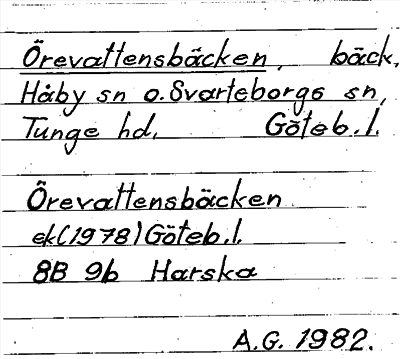 Örevattensbäcken, bäck,
Håby sn o. Svarteborgs sn,
Tunge hd. Göteb.l.
Örevattensbäcken
ek(1978) Göteb.l.
8B 9b Harska
A.G. 1982.